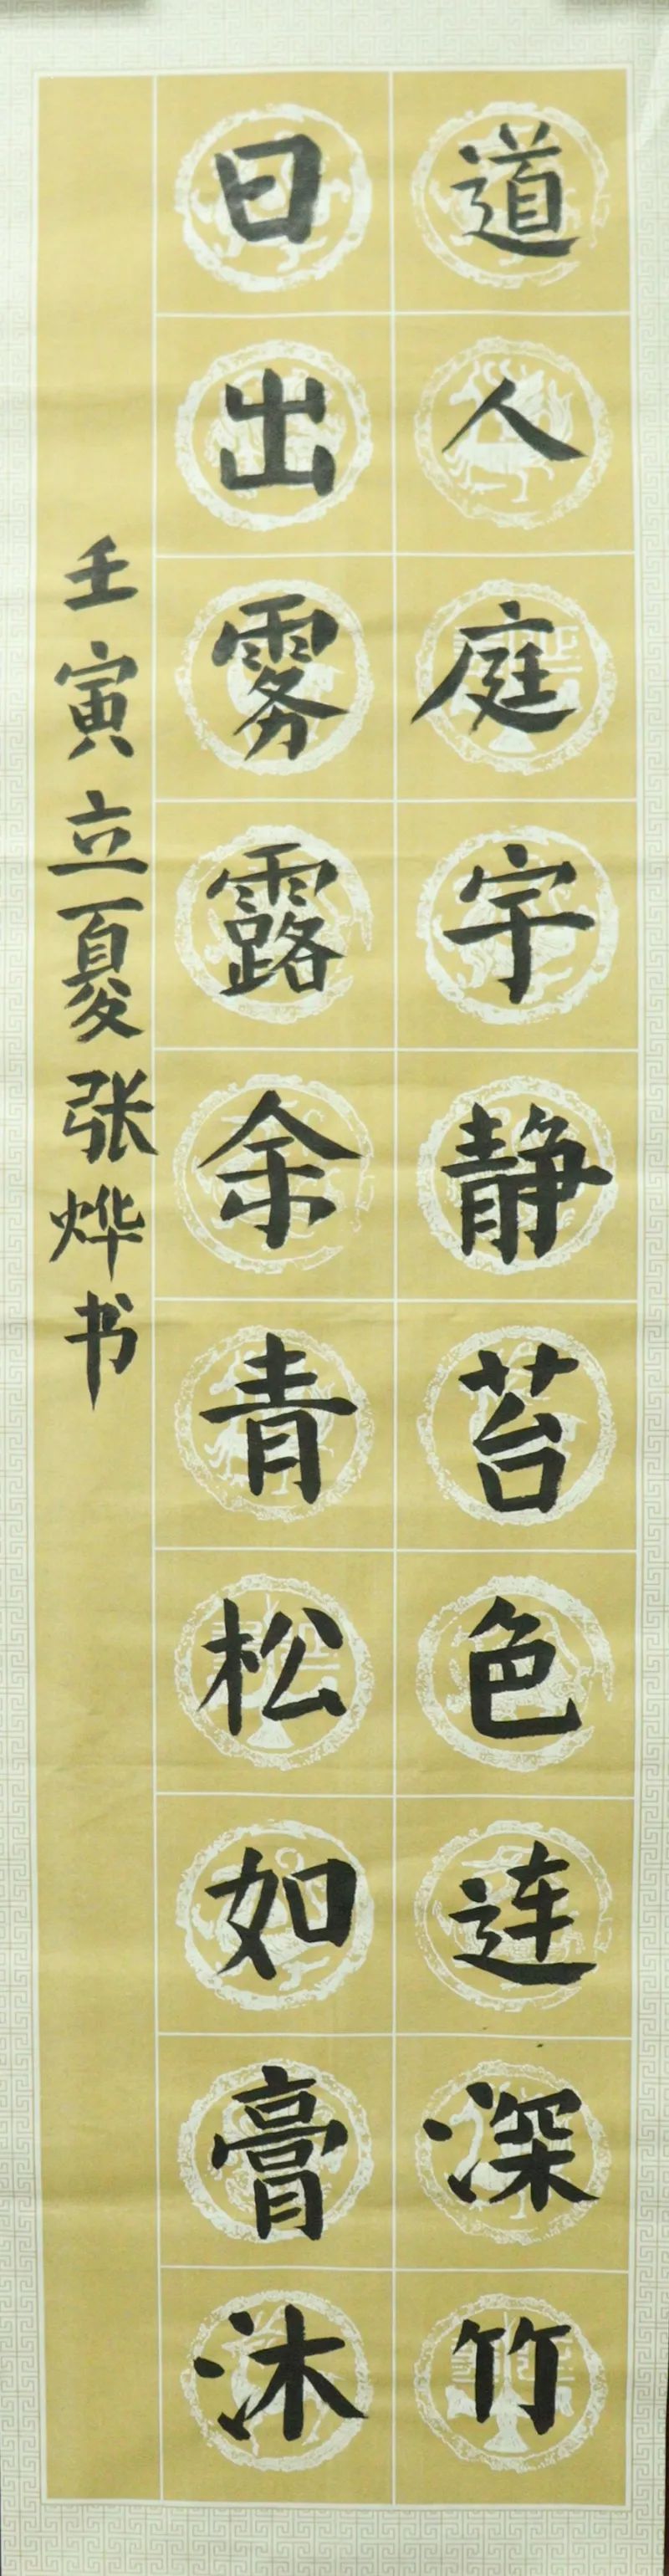 道人庭宇静苔色连深竹
日出雾露余青松如膏沐
壬寅立夏张烨书